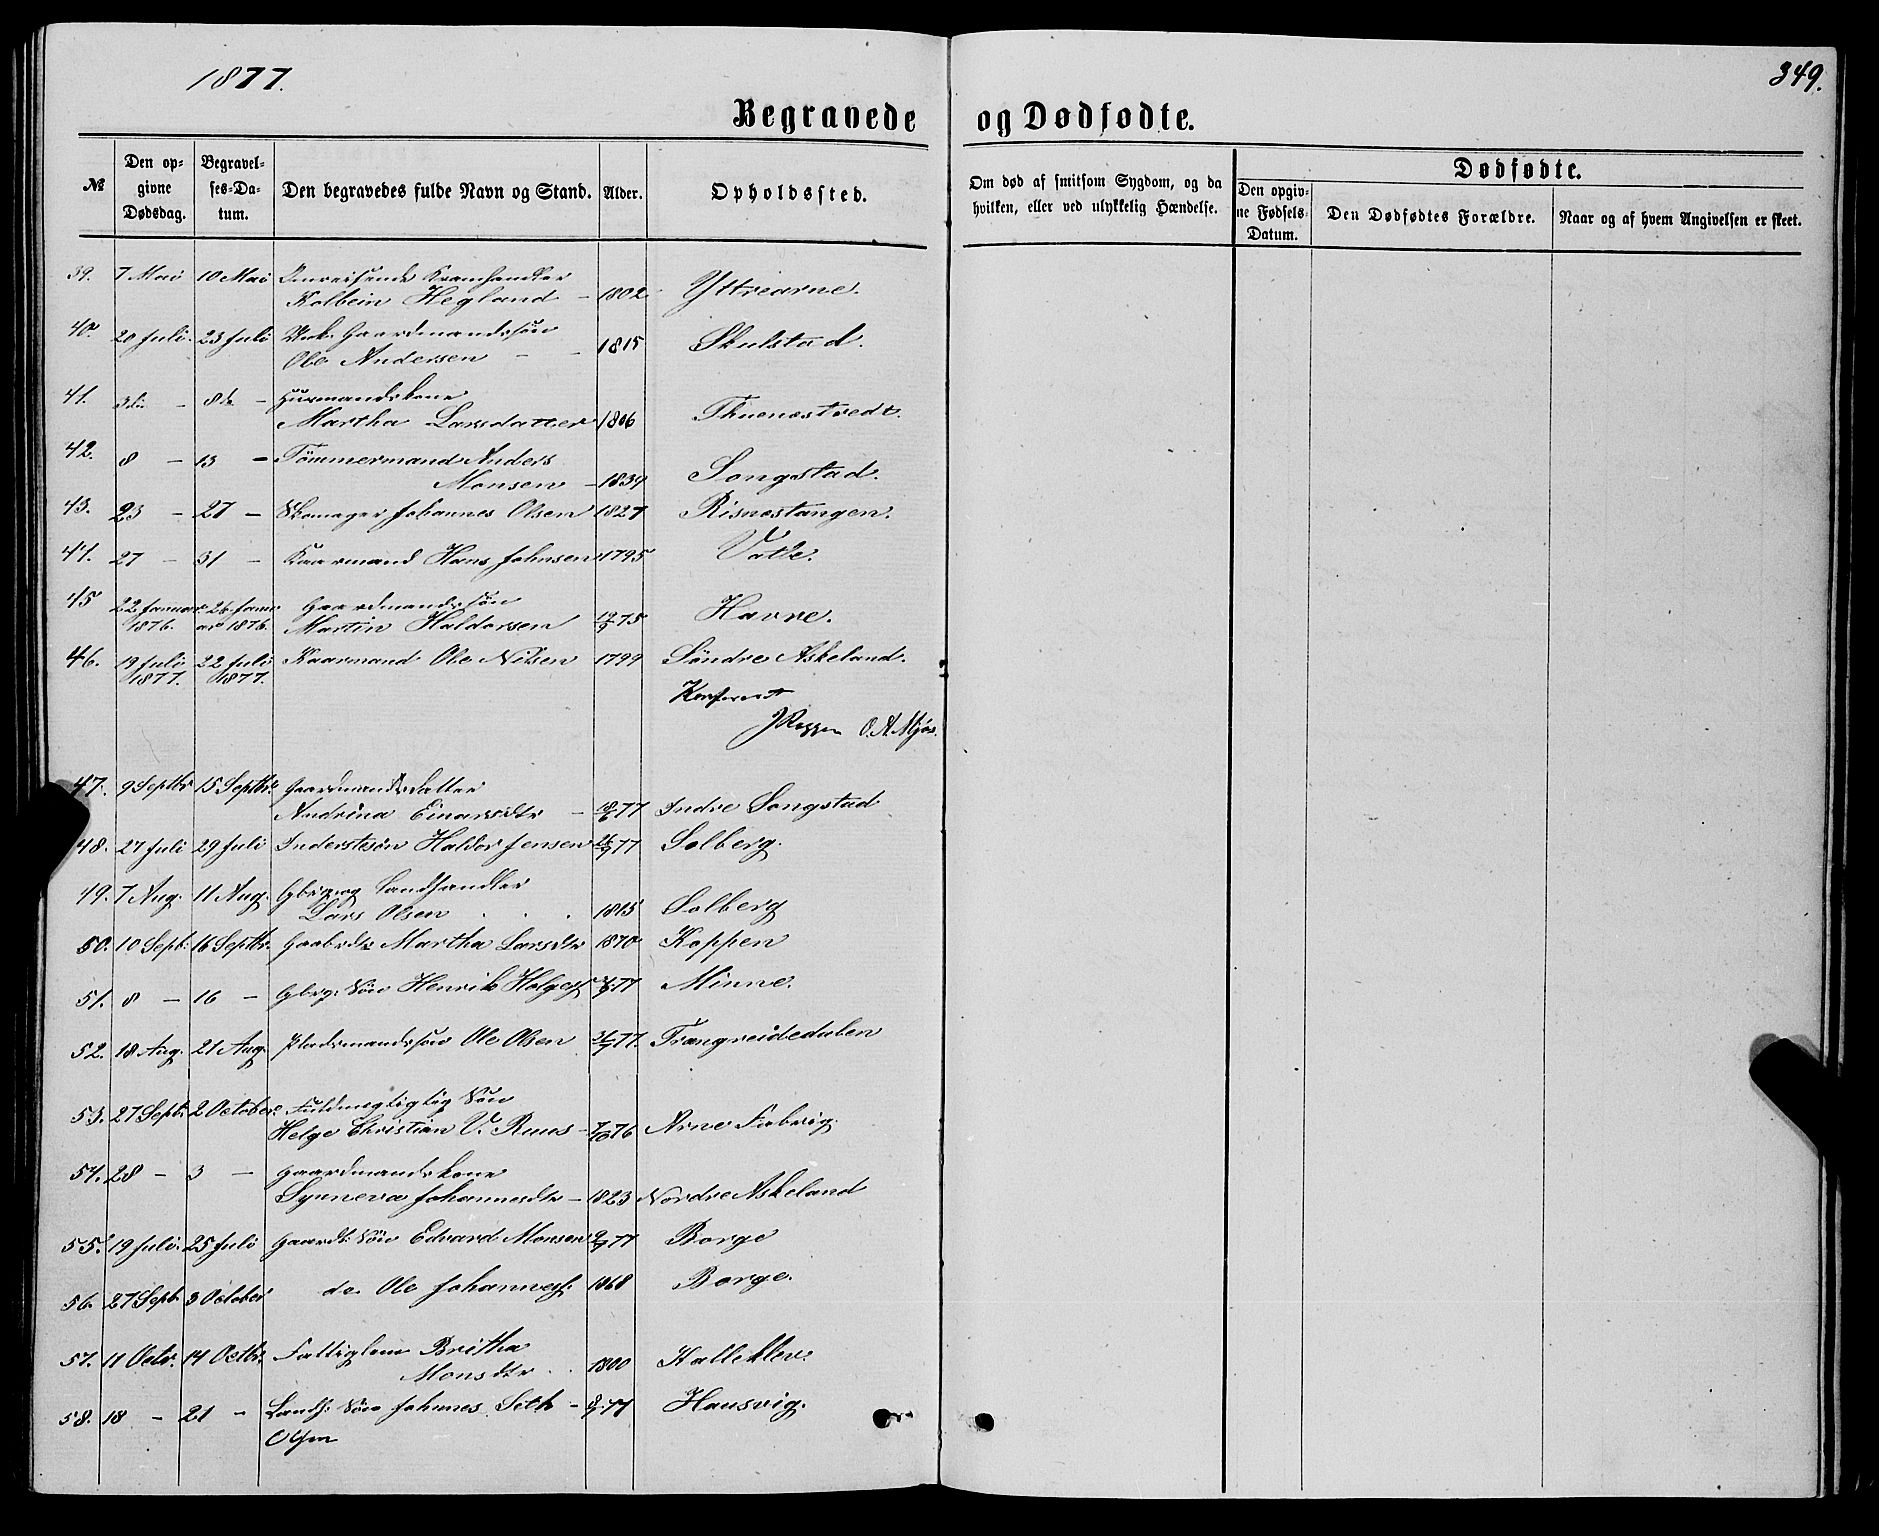 1877.
349.
Begravede og Dødfødte.
№
Den opgivne Dødsdag.
Begravelses-Datum.
Den begravedes fulde Navn og Stand.
Alder.
Opholdssted.
Om død af smitsom Sygdom, og da hvilken, eller ved ulykkelig Hændelse.
Dødfødte.
Den opgivne Fødsels-Datum.
Den Dødfødtes Forældre.
Naar og af hvem Angivelsen er skeet.
39. 7 Mai 10 Mai Omreisende Kramhandler
Kolbein Hegland – 1802 Yttrearne.
40. 20 Juli 23 Juli Gaardmandssøn
Ole Andersen – – 1815 Skulstad.
41. 3die – 8de – Husmandskone
Martha Larsdatter 1806
42. 8 – 13 – Tömmermand Anders
Monsen – 1839 Songstad.
43. 23 – 27 – Skomager Johannes Olsen 1827 Risnæstangen.
44. 27 – 31 – Kaarmand Hans Johnsen 1795 Vatle.
45 22 Januar 1876. 26 Januar 1876. Gaardmandssøn
Martin Haldorsen 75 Havre.
46. 19 Juli 1877. 22 Juli 1877. Kaarmand Ole Nilsen 1799 Söndre Askeland.
Konfereret
O. A. Mjøs.
47. 9 Septbr 15 Septbr. Gaardmandsdatter
Andrina Einarsdtr – 77 Indre Songstad
48. 27 Juli 29 Juli Inderstesön Haldor Jensen 77 Solberg.
49. 7 Aug. 11 Aug. Gbr. og Landhandler
Lars Olsen . . . 1815 Solberg
50. 10 Sept. 16 Septbr. Martha Larsdtr 1870 Koppen
51. 8 – 16 – Gbrg. Søn Henrik Helges. 77 Minne.
52. 18 Aug. 21 Aug. Pladsmandssøn Ole Olsen 77. Trængreidedalen
53. 27 Sept. 2 October. Fuldmegtigtig Søn
Helge Christian V. Ruus – 7/10 76 Arne Fabrig.
54. 28 – 3 – Gaardmandskone
Synneva Johannesdtr – 1823 Nordre Askeland
55. 19 Juli. 25 Juli Gaardb. Søn Edvard Monsen 77 Borge
56. 27 Sept. 3 October do. Ole Johanness. 1868 Borge.
57. 11 Octr. 14 Octbr. Fattiglem Britha
Monsdtr . . 1800 Halleklev.
58. 18 – 21 – Landh. Søn Johnnes Seth – 77 Hausvig.
Olsen